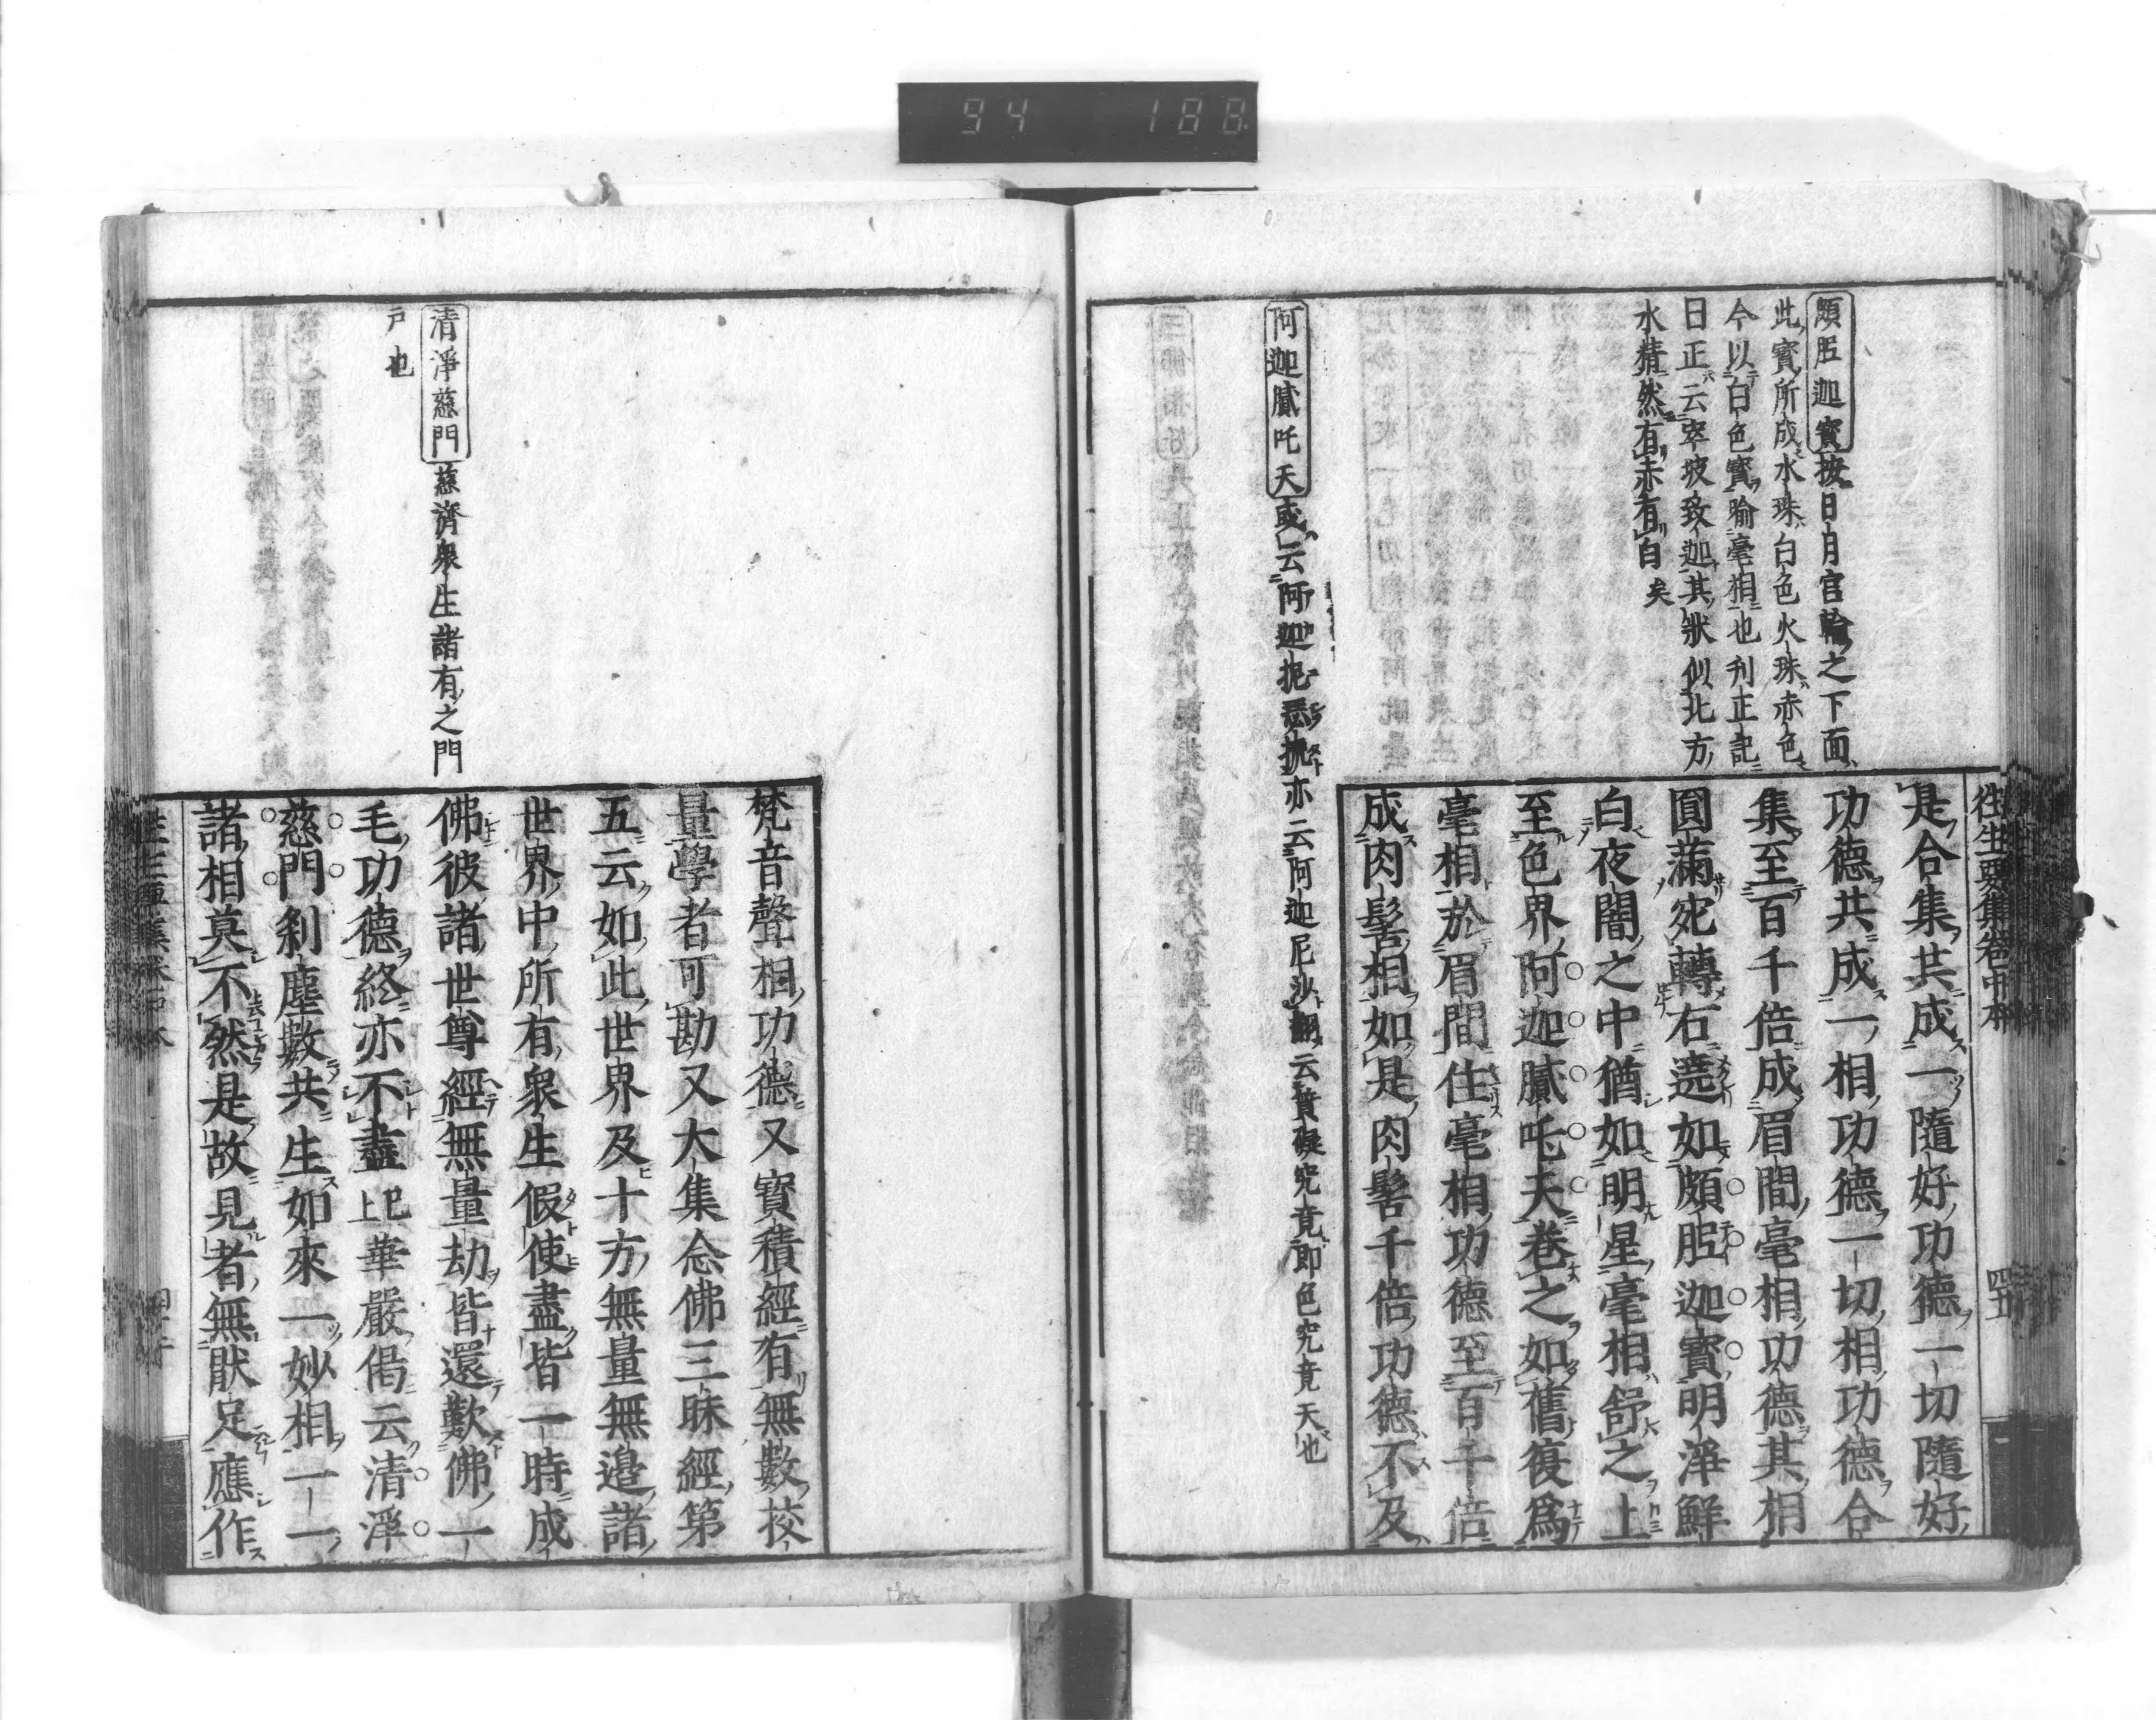 94 188
往生要集卷中本
四五
頗胝迦寶按日月宮輪之下面
此寶所成水珠白色火珠赤色
今以白色寶喻毫相也刋正記
日正云窣坡致迦其狀似北方
水精然有赤有白矣
阿迦膩吒天或云阿迦抳悉搋亦云阿迦尼沙翻云質礙究竟即色究竟天也
是合集共成一隨好功德一切隨好
功德共成一相功德一切相功德合
集至百千倍成眉間毫相功德其相
圓滿宛轉右遶如頗胝迦寶明淨鮮
白夜闇之中猶如明星毫相舒之上
至色界阿迦膩吒天卷之如舊復爲
毫相於眉間住毫相功德至百千倍
成肉髻相如是肉髻千倍功德不及
清淨慈門慈濟衆生諸有之門
戸也
梵音聲相功德又寶積經有無數挍
量學者可勘又大集念佛三昧經第
五云如此世界及十方無量無邊諸
世界中所有衆生假使盡皆一時成
佛彼諸世尊經無量劫皆還歎佛一
毛功德終亦不盡已上華嚴偈云清淨
慈門刹塵數共生如來一妙相一一
諸相莫不然是故見者無猒足應作